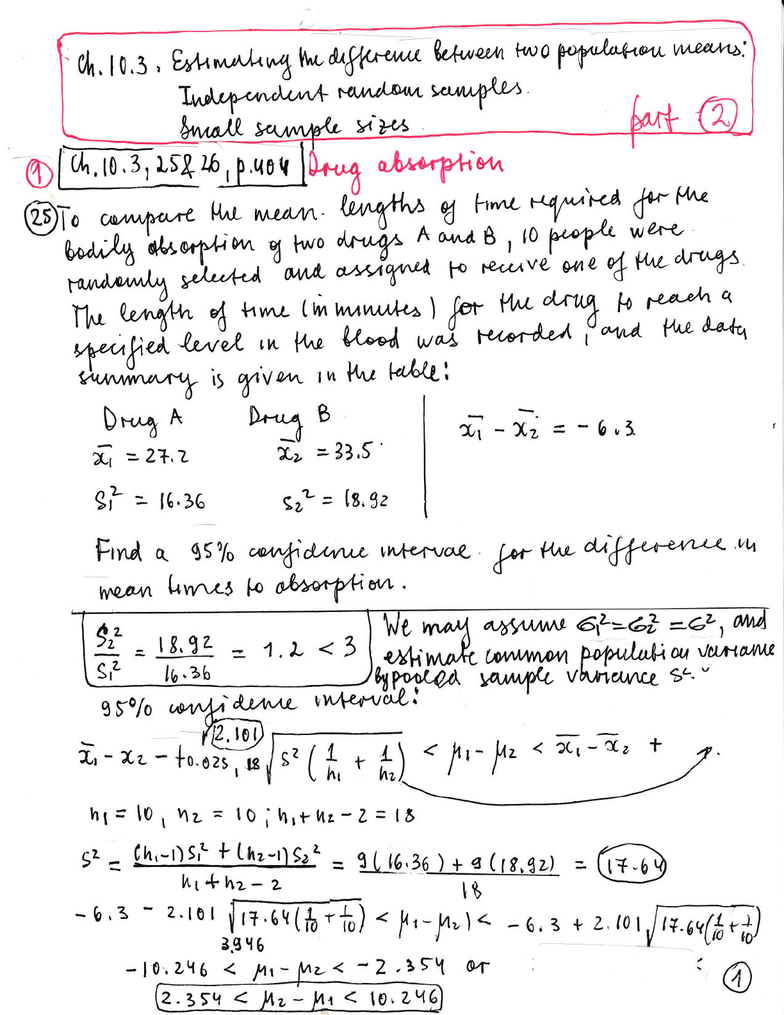 Ch. 10.3. Estimating the difference between two population means:
Independent random samples.
Small sample sizes
part 2
9 Ch. 10.3, 25 & 26, p.404 Drug absorption
25 To compare the mean lengths of time required for the
bodily absorption of two drugs A and B, 10 people were
randomly selected and assigned to receive one of the drugs.
The length of time (in minutes) for the drug to reach a
specified level in the blood was recorded, and the data
summary is given in the table:
Drug A Drug B
x̄₁ = 27.2 x̄₂ = 33.5 x̄₁ - x̄₂ = -6.3
S₁² = 16.36 S₂² = 18.92
Find a 95% confidence interval for the difference in
mean times to absorption.
S₂²/S₁² = 18.92/16.36 = 1.2 < 3
We may assume σ₁² = σ₂² = σ², and
estimate common population variance
by pooled sample variance S².
95% confidence interval:
2.101
x̄₁ - x₂ - t0.025, 18 √S²(1/n₁ + 1/n₂) < μ₁ - μ₂ < x̄₁ - x̄₂ +
n₁ = 10, n₂ = 10; n₁ + n₂ - 2 = 18
S² = (n₁-1)S₁² + (n₂-1)S₂² / n₁ + n₂ - 2 = 9(16.36) + 9(18.92) / 18 = 17.64
-6.3 - 2.101 √17.64(1/10 + 1/10) < μ₁ - μ₂) < -6.3 + 2.101 √17.64(1/10 + 1/10)
3.946
-10.246 < μ₁ - μ₂ < -2.354 or
2.354 < μ₂ - μ₁ < 10.246
1